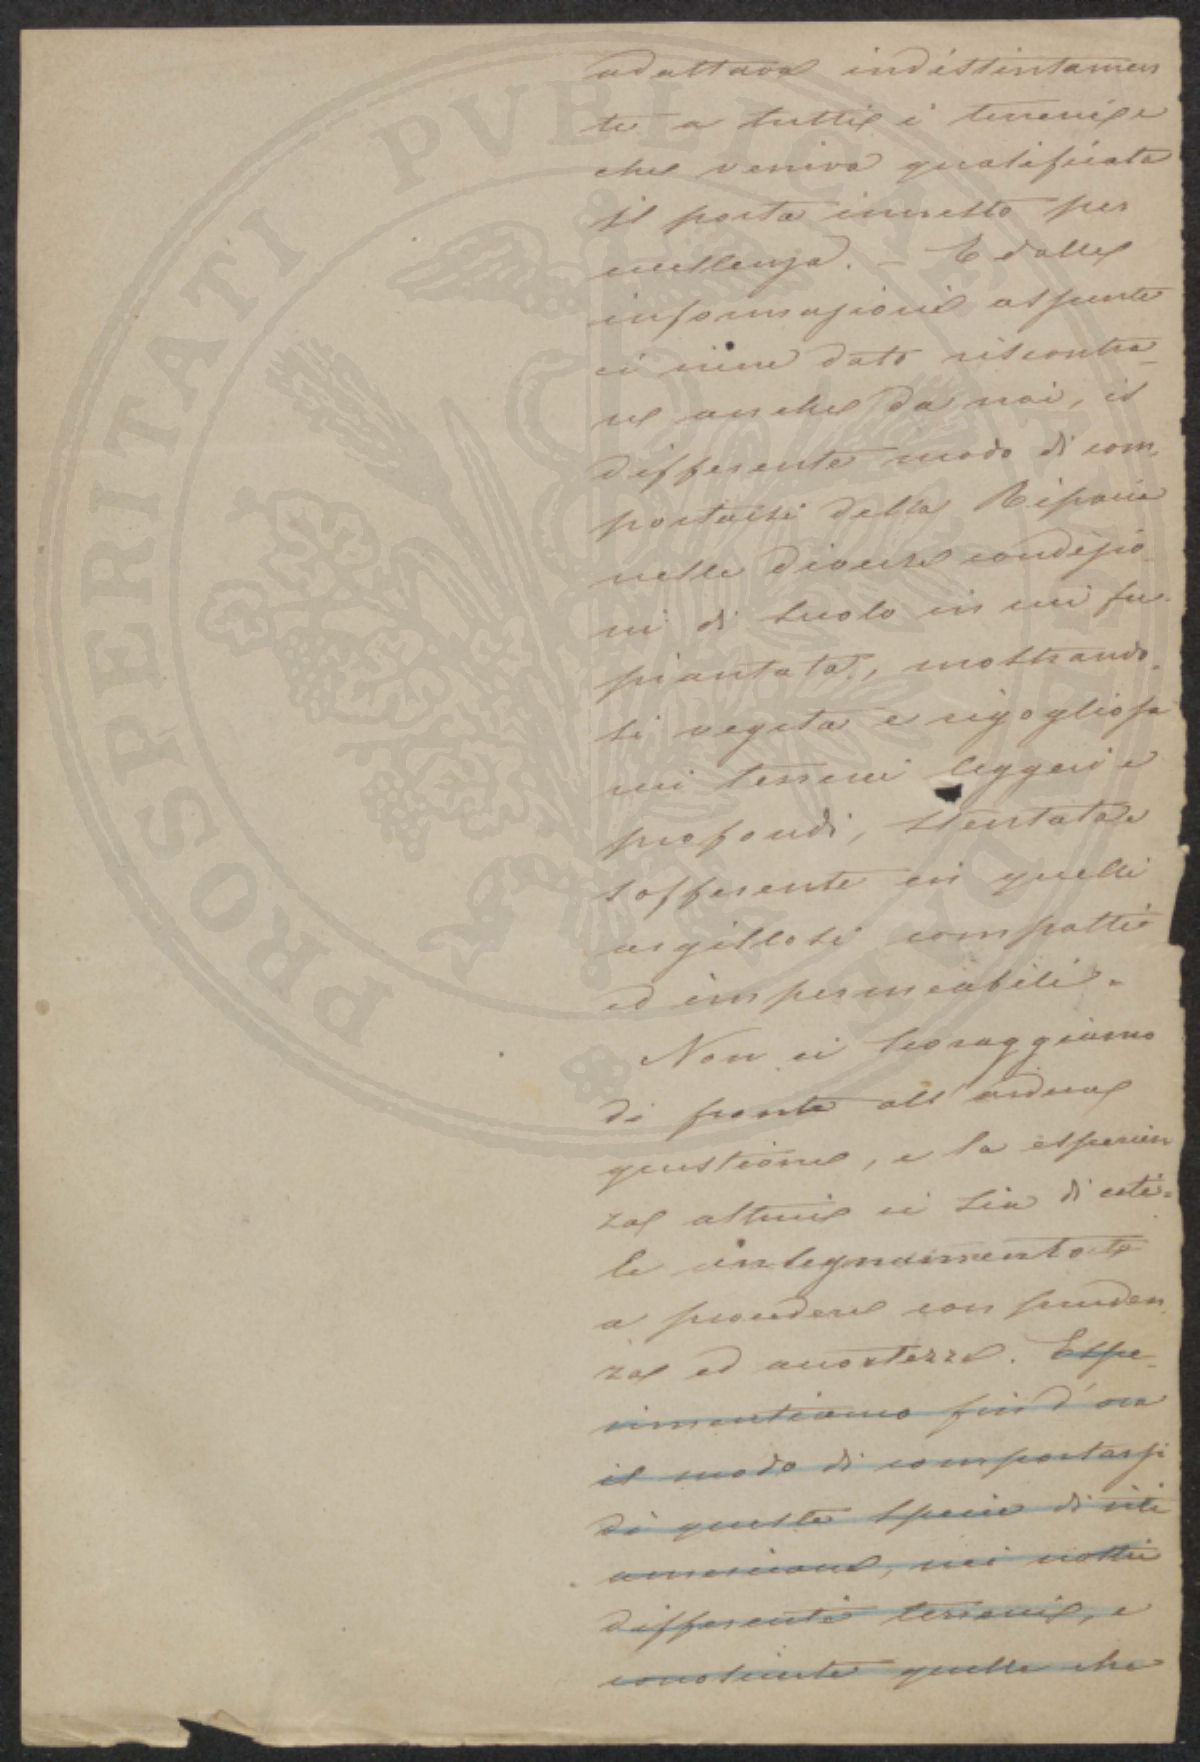 adattava indistintamen
te a tutti i terreni e
che veniva qualificata
il porta innesto per
eccellenza. – E dalle
informazioni assunte
ci viene dato riscontra-
re anche da noi, il
differente modo di com
portarsi della Riparia
nelle diverse condizio
ni di suolo in cui fu
piantata, mostrando-
si vegeta e rigogliosa
nei terreni leggeri e
profondi, stentata e
sofferente in quelli
argillosi compatti
ed impermeabili.
Non ci scoraggiamo
di fronte all'ardua
questione, e la esperien
za altrui ci sia di uti-
le insegnamento
a procedere con pruden
za ed accortezza. Espe-
rimentiamo fin d'ora
il modo di comportarsi
di queste specie di viti
americane, nei nostri
differenti terreni, e
conosciute quelle che
PROSPERITATI PVBLICAE